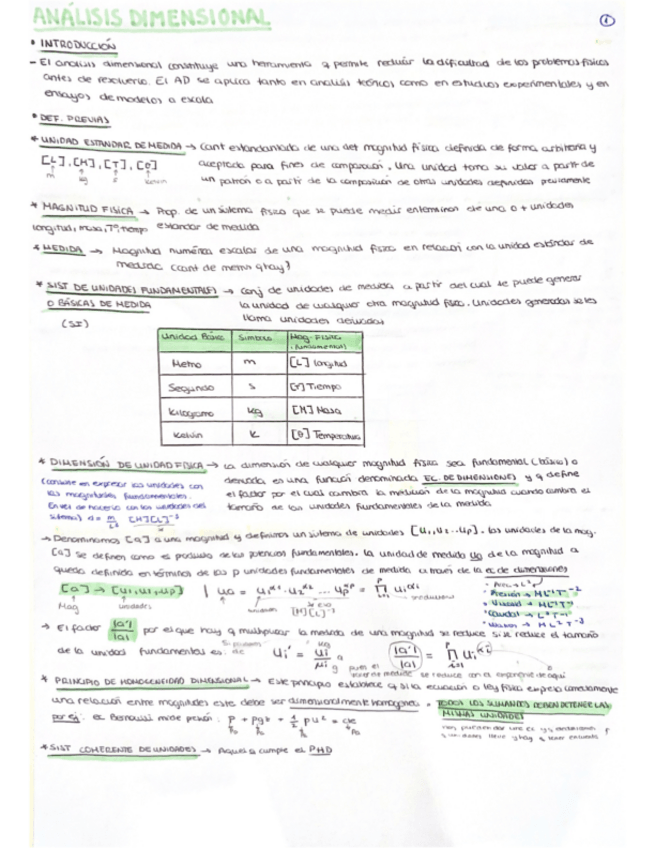 ANÁLISIS DIMENSIONAL
1
* INTRODUCCIÓN
- El análisis dimensional constituye una herramienta q permite reducir la dificultad de los problemas físicos
antes de resolverlo. El AD se aplica tanto en análisis teóricos como en estudios experimentales y en
ensayos de modelos a escala
* DEF. PREVIAS
* UNIDAD ESTANDAR DE MEDIDA → Cant estandarizada de una det magnitud física definida de forma arbitraria y
[L], [M], [T], [θ] aceptada para fines de comparación. Una unidad toma su valor a partir de
m kg s Kelvin un patrón o a partir de la composición de otras unidades definidas previamente
* MAGNITUD FISICA → Prop. de un sistema físico que se puede medir en términos de una o + unidades
longitud, masa, Tª, tiempo estandar de medida
* MEDIDA → Magnitud numérica escalar de una magnitud física en relación con la unidad estándar de
medida (cant de metros q hay)
* SIST DE UNIDADES FUNDAMENTALES → conj de unidades de medida a partir del cual se puede generar
O BÁSICAS DE MEDIDA la unidad de cualquier otra magnitud física. Unidades generadas se les
(SI) llama unidades derivadas
Unidad Básica Símbolo Mag. Física
fundamental
Metro m [L] longitud
Segundo s [T] Tiempo
Kilogramo kg [M] Masa
Kelvin k [θ] Temperatura
* DIMENSIÓN DE UNIDAD FÍSICA → La dimensión de cualquier magnitud física sea fundamental (básica) o
(consiste en expresar las unidades con derivada, es una función denominada EC. DE DIMENSIONES y q define
las magnitudes fundamentales. el factor por el cual cambia la medición de la magnitud cuando cambia el
En vez de hacerlo con las unidades del tamaño de las unidades fundamentales de la medida
→ Denominamos [a] a una magnitud y definimos un sistema de unidades [U1, U2 ... Up]. las unidades de la mag.
[a] se definen como el producto de las potencias fundamentales. La unidad de medida Ua de la magnitud a
queda definida en términos de las p unidades fundamentales de medida a través de la ec de dimensiones
[a] → [U1, U2, Up]
Mag unidades
Presión → ML⁻¹T⁻²
Caudal → L³T⁻¹
→ El factor |a'|/|a| por el que hay q multiplicar la medida de una magnitud se reduce si se reduce el tamaño
de la unidad fundamental es:
* PRINCIPIO DE HOMOGENEIDAD DIMENSIONAL → Este principio establece q si la ecuación o ley física expresa correctamente
una relación entre magnitudes esta debe ser dimensionalmente homogénea = TODOS LOS SUMANDOS DEBEN DE TENER LAS
MISMAS UNIDADES
por ej: ec Bernoulli mide presión: P + ρgz + 1/2 ρu² = cte
* SIST COHERENTE DE UNIDADES → Aquel q cumple el PHD